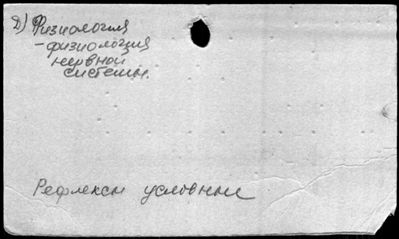 2) Физиология
-физиология
нервной
системы.
Рефлексы условные